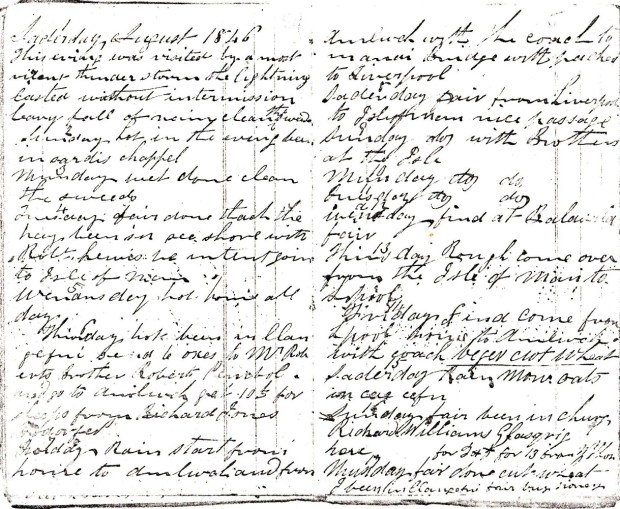 Saterday August 1846
This iving was visited by a most
vilent thunder storm the lightning
lasted without intermission
heavy fall of rainy clean the sweeds
Sunday hot in the evening been
in gardis chappel
Munday wet done clean
the sweeds
Tuesday fair done stack the
hay been in sea shore with
Robt hewis he intent goin
to Isle of Man
Wenansday hot home all
day
Thursday hot been in llan
gefni
brother Robert
and go to Amlwch for
from Richard Jones
Friday Rain start from
home to Amlwch and from
Amlwch with the coach to
manai bridge with packed
to Liverpool
Saderday fair from Liverpool
to Isle of man nice passage
Sunday do with Brothers
at the Isle
Munday do do
tusday do do
wensday find at
fair
Thirsday Rough come over
from the Isle of Man to
Lpool
Friday find come from
Lpool home to Amlwch
with coach begin cut wheat
Saderday Rain Mow oats
in cay cefn
Sunday fair been in church
Richard Williams
here for
Munday fair done cut wheat
I been in llangefni fair